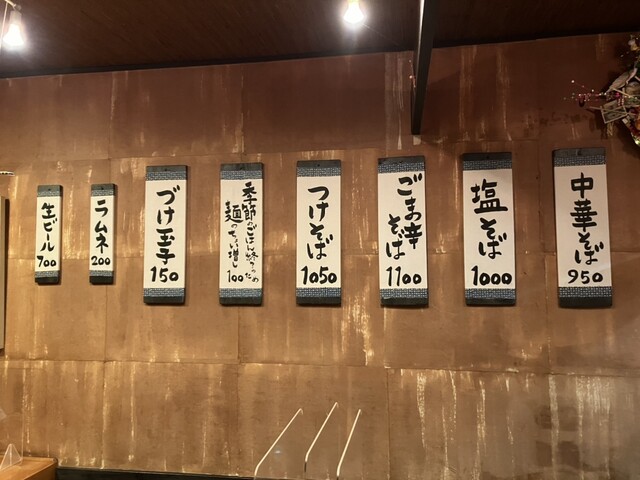 中華そば
950
塩そば
1000
ごま辛
そば
1100
つけそば
1050
季節のごはん終了のため
麺のっちょい増し
100
づけ玉子
150
ラムネ
200
生ビール
700